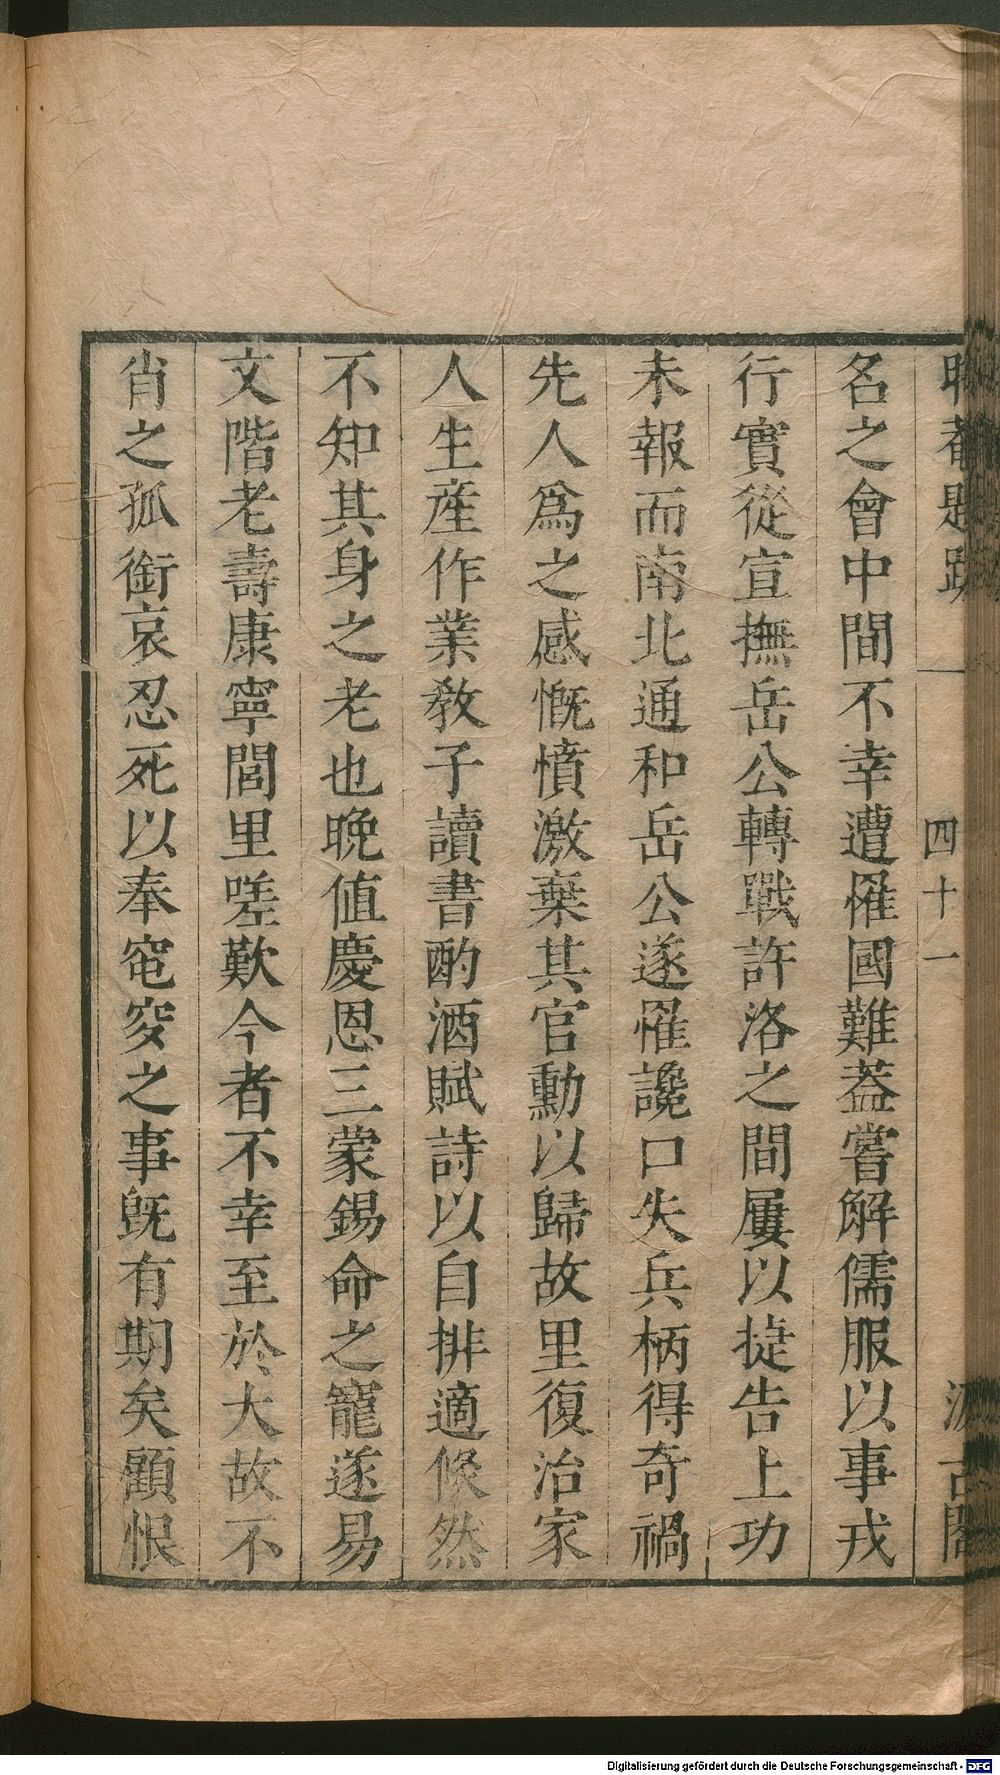 名之會中間不幸遭罹國難葢嘗解儒服以事戎
行實從宣撫岳公轉戰許洛之間屢以捷告上功
未報而南北通和岳公遂罹讒口失兵柄得奇禍
先人爲之感慨憤激棄其官勳以歸故里復治家
人生產作業敎子讀書酌酒賦詩以自排適倏然
不知其身之老也晚值慶恩三蒙錫命之寵遂易
文階老壽康寧閭里嗟歎今者不幸至於大故不
肖之孤銜哀忍死以奉窀穸之事旣有期矣顧恨
四十一
Digitalisierung gefördert durch die Deutsche Forschungsgemeinschaft - DFG